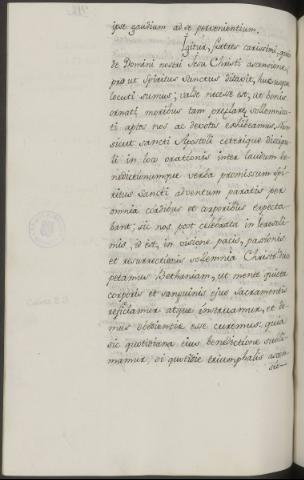 ipse gaudium ad se pervenientium.
Igitur, fratres carissimi, quia
de Domini nostri Jesu Christi ascensione,
prout Spiritus Sanctus ditavit, huc usque
locuti sumus; valde necesse est, ut bonis
ornati moribus tam preclare sollemnita-
ti aptos nos ac devotos exhibeamus. Nam
sicut sancti Apostoli ceterique discipu-
li in loco orationis inter laudum be-
nedictionumque verba promissum Spi-
ritus Sancti adventum paratis per
omnia cordibus et corporibus expecta-
bant; sic nos post celebrata in Jerusale-
mis, id est, in visione pacis, passionis
et resurrectionis solemnia Christi
petamus Bethaniam, ut mente quieta
corporis et sanguinis ejus Sacramentis
reficiamur atque instruamur, et do-
mus obedientie esse curemus: quia
sic quotidiana eius benedictione subli-
mamur, si quotidie triumphalis ascen-
sio-